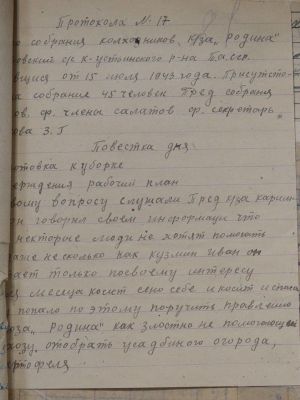 Протокола № 17
го собрания колхозников к/за „Родина"
овский ср к-устинского р-на Та.сср.
вшийся от 15 июля 1943 года. Присутство-
на собрание 45 человек Пред собрания
ов. ср. члены салатов ср. секретарь
ова З. Г
Повестка дня:
отовка куборке
ерждения рабочий план
вому вопросу слушали Пред к/за карим-
он говорил своем информаци что
некоторые люди не хотят помогать
аше несколько как Кузмин Иван он
ает только посвоему интересу
ец месяца косит сено себе и косит и
попало по этому поручить правлению
за „Родина" как злостно не помогающему
хозу отобрать усадбиного огорода,
ртофеля